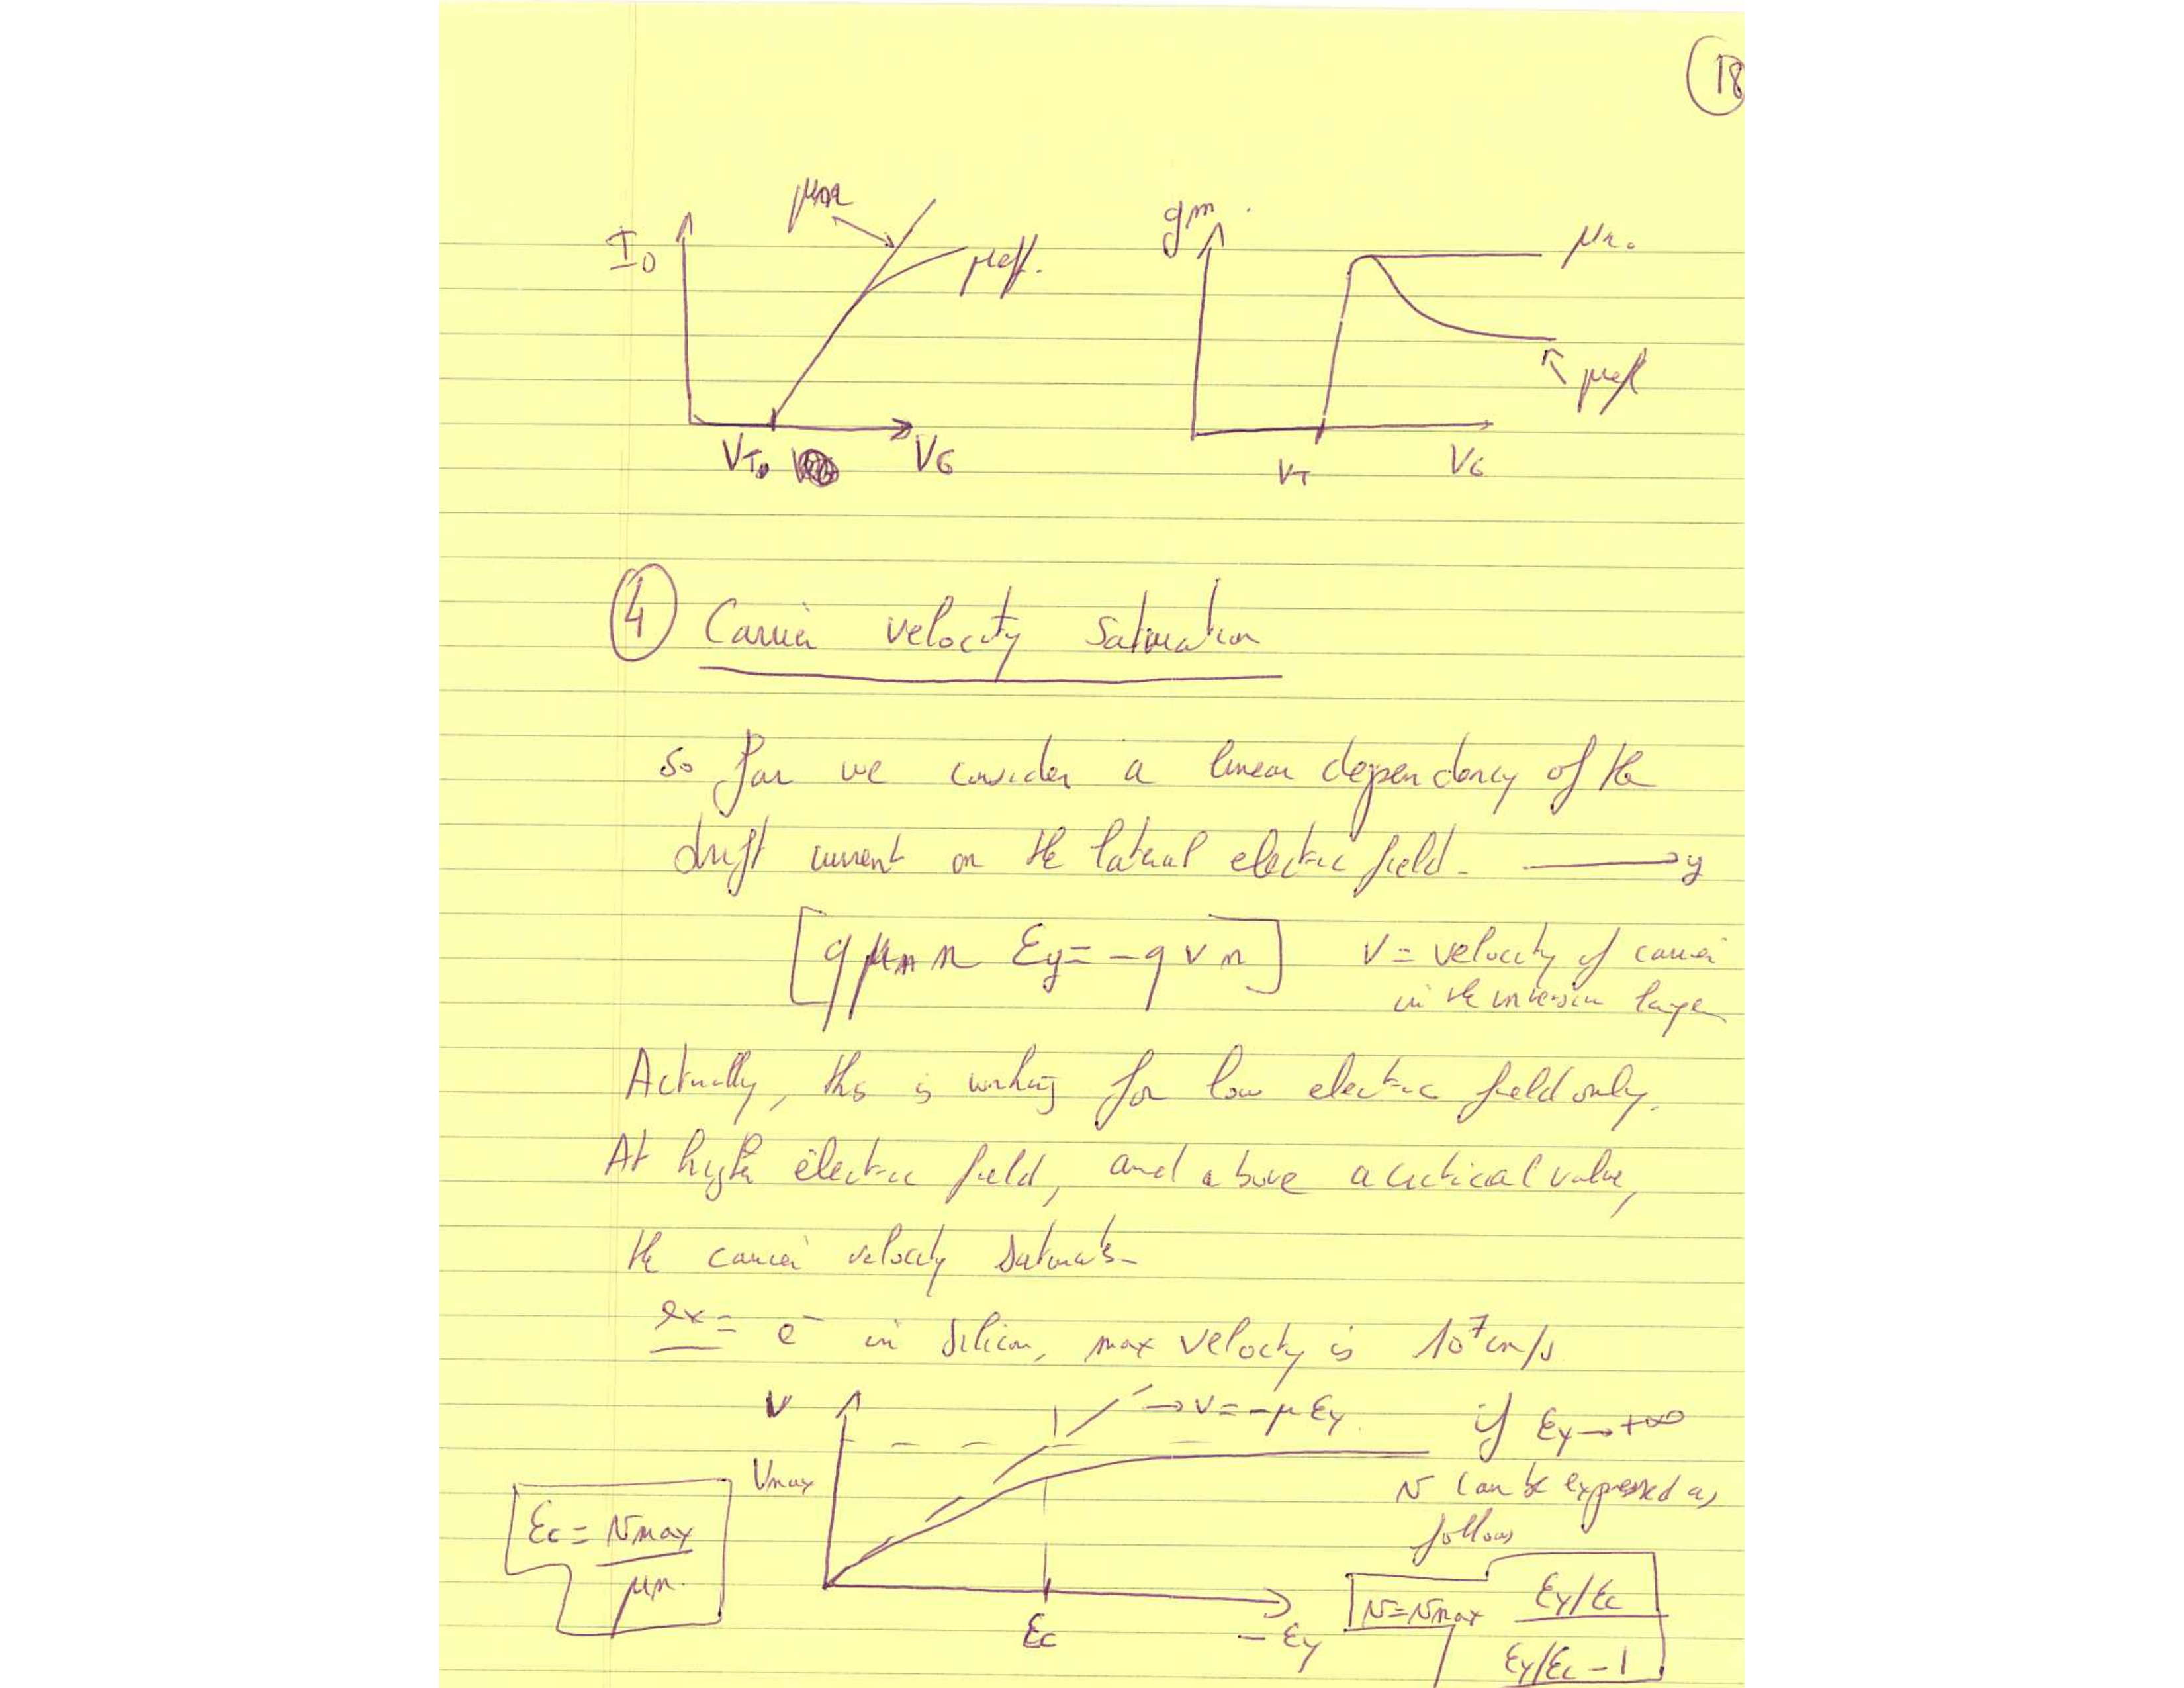 18
μn
I_D
μeff.
V_T0
V_G
gm
μn.
μeff
V_T
V_G
4 Carrier velocity saturation
So far we consider a linear dependency of the
drift current on the lateral electric field. → y
[q μn n Ey = -q v n] V = velocity of carrier
in the inversion layer
Actually, this is working for low electric field only.
At high electric field, and above a critical value,
the carrier velocity saturates
ex = e⁻ in Silicon, max velocity is 10⁷ cm/s
V
→ V = -μ Ey
if Ey → +∞
Vmax
v can be expressed as
follows
Ec = vmax / μn.
v = vmax (Ey/Ec) / (Ey/Ec - 1)
Ec
-Ey